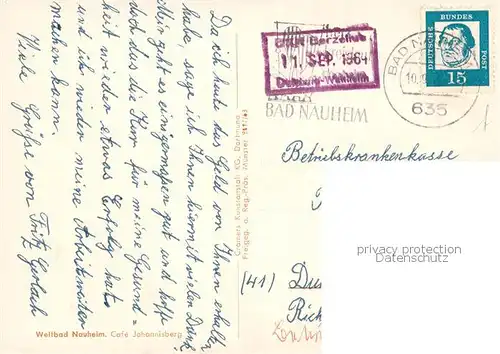 Da ich heute das Geld von Ihnen erhalten
habe sage ich Ihnen hiermit vielen Dank
Mir geht es einigermaßen gut und hoffe
doch das die Kur für meine Gesund=
heit wieder etwas Erfolg hat
und ich wieder meine Arbeit weiter
machen kann.
Viele Grüße von Fritz Gerlach
Weltbad Nauheim. Café Johannisberg
Cramers Kunstanstalt KG, Dortmund
Freigeg. d. Reg.-Präs. Münster
11. SEP. 1964
BAD NAUHEIM
BAD NA
10.
635
DEUTSCHE BUNDES POST
15
Betriebskrankenkasse
(41) Dui
Rich
privacy protection
Datenschutz